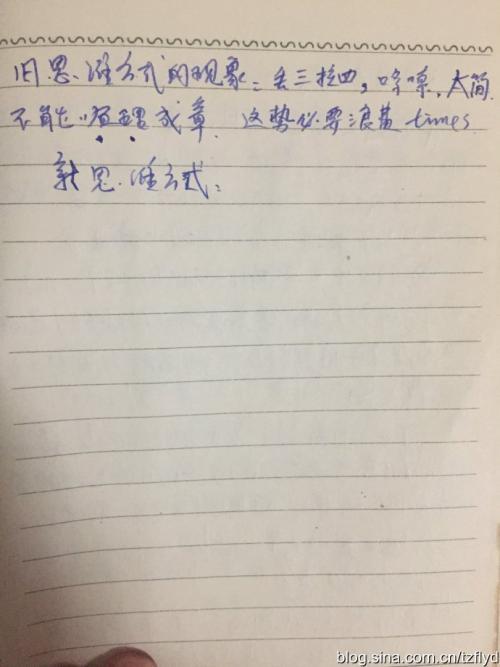 旧思维方式的现象：丢三拉四，啰嗦，太简
不能顺理成章. 这势必要浪费 times
新思维方式：
blog.sina.com.cn/tzflyd